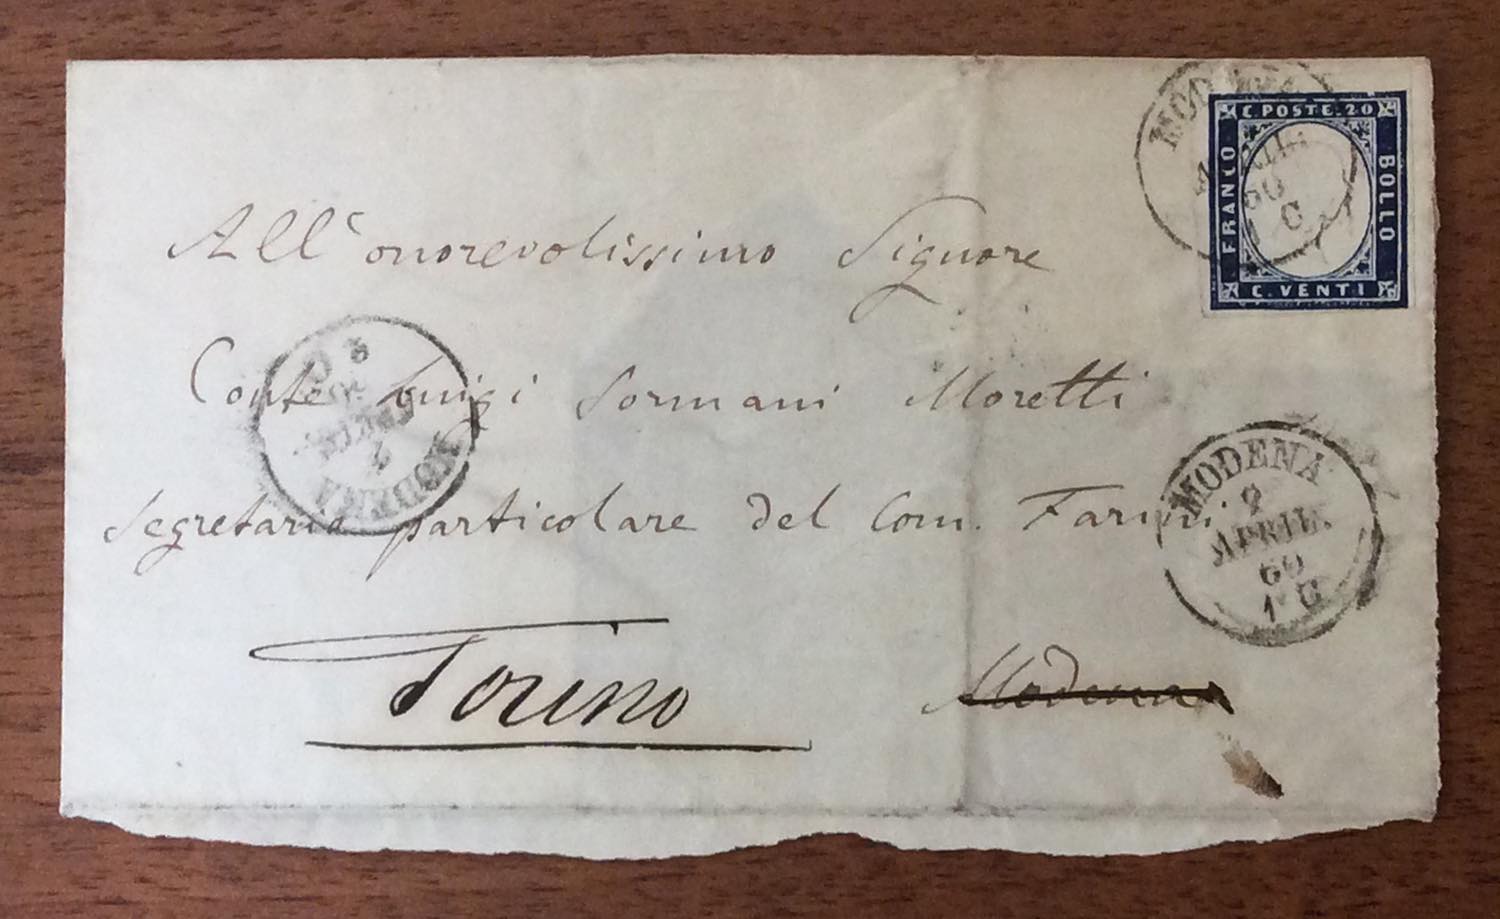 C. POSTE. 20
FRANCO
BOLLO
C. VENTI
60
C
All' onorevolissimo Signore
Conte Luigi Sormani Moretti
Segretario particolare del Com. Farini
Torino
Modena
MODENA
MODENA
2
APRILE
60